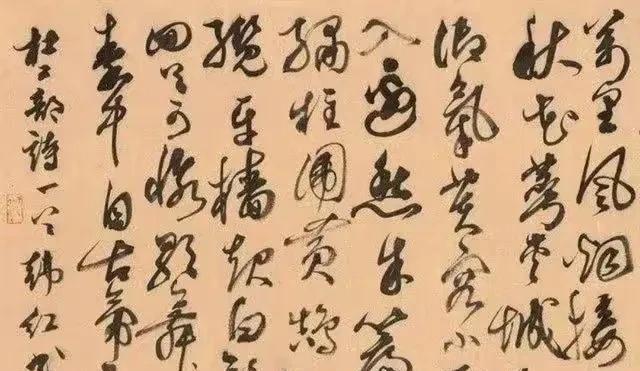 萬里風烟接
秋花萼夾城
御氣芙蓉小
入邊愁朱簾
繡柱圍黃鵠
纜牙檣起白
回首可憐歌舞
秦中自古帝
杜工部詩一首